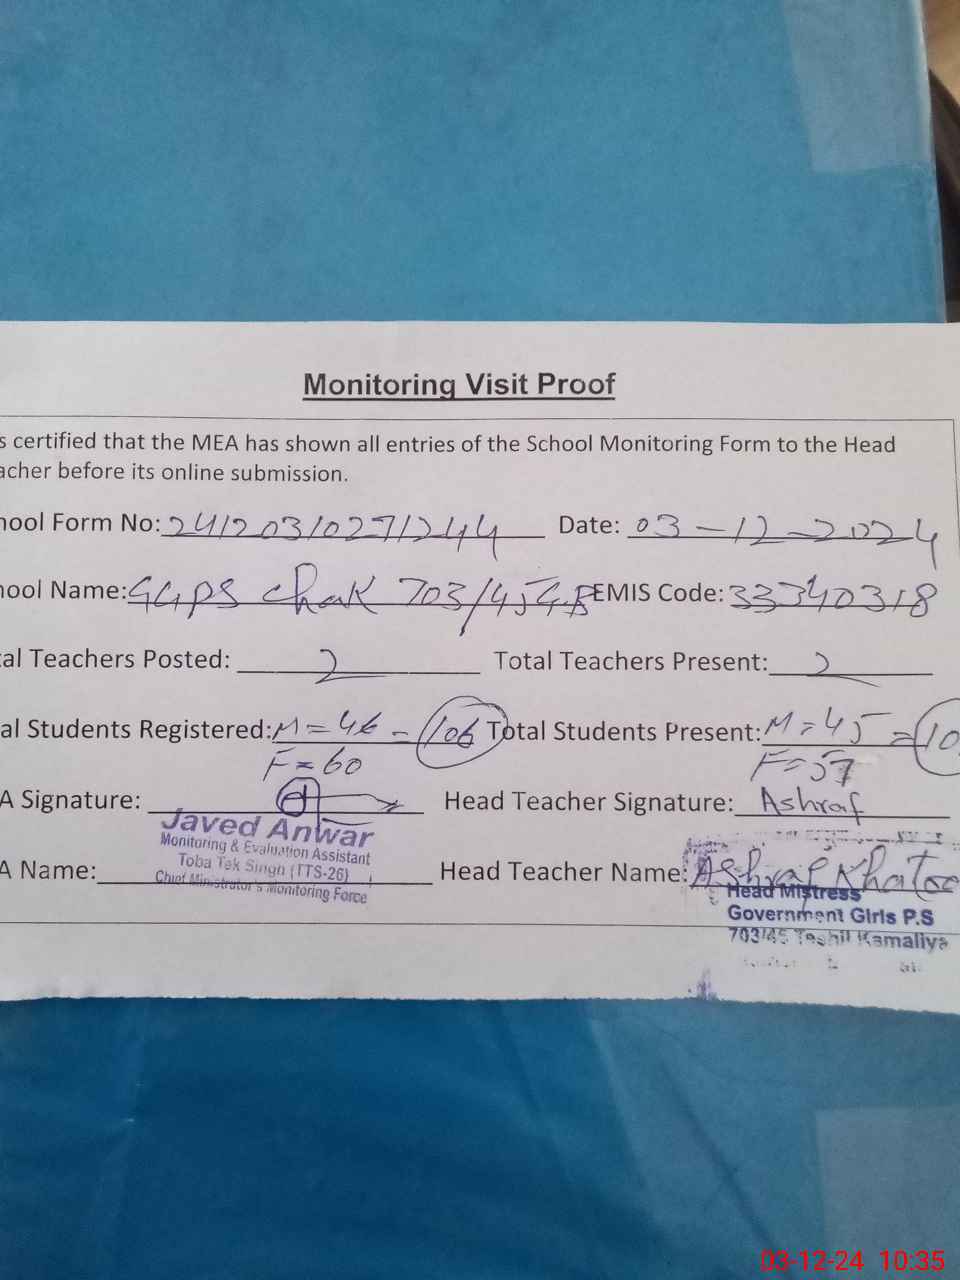 Monitoring Visit Proof
s certified that the MEA has shown all entries of the School Monitoring Form to the Head
acher before its online submission.
hool Form No: 24120310271244 Date: 03-12-2024
hool Name: GGPS Chak 703/45GB EMIS Code: 33340318
al Teachers Posted: 2 Total Teachers Present: 2
al Students Registered: M = 46 = 106 Total Students Present: M = 45 = 10
F = 60 F = 57
A Signature: Head Teacher Signature: Ashraf
Javed Anwar
Monitoring & Evaluation Assistant
Toba Tek Singh (TTS-26)
Chief Ministrator's Monitoring Force
A Name: Head Teacher Name: Ashraf Khatoo
Head Mistress
Government Girls P.S
703/45 Teshil Kamaliya
03-12-24 10:35